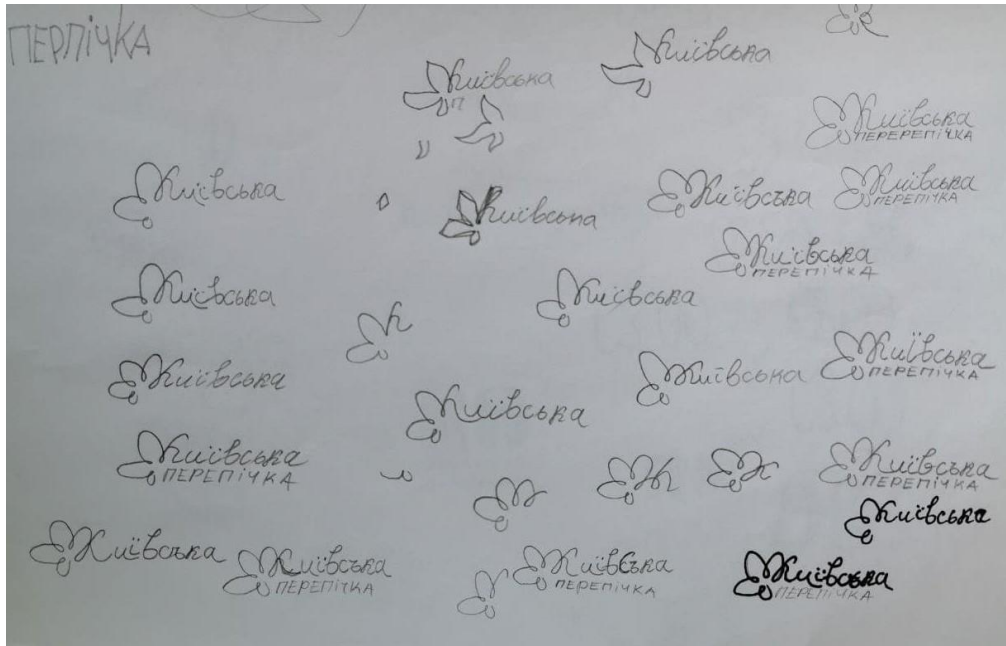 ПЕРПІЧКА
Київська
Київська
п
Київська
ПЕРЕРЕПІЧКА
Київська
Київська
Київська
ПЕРЕПІЧКА
Київська
Київська
ПЕРЕПІЧКА
Київська
Київська
К
Київська
ПЕРЕПІЧКА
Київська
Київська
Київська
Київська
ПЕРЕПІЧКА
К
К
Київська
ПЕРЕПІЧКА
Київська
Київська
Київська
ПЕРЕПІЧКА
Київська
ПЕРЕПІЧКА
Київська
ПЕРЕПІЧКА